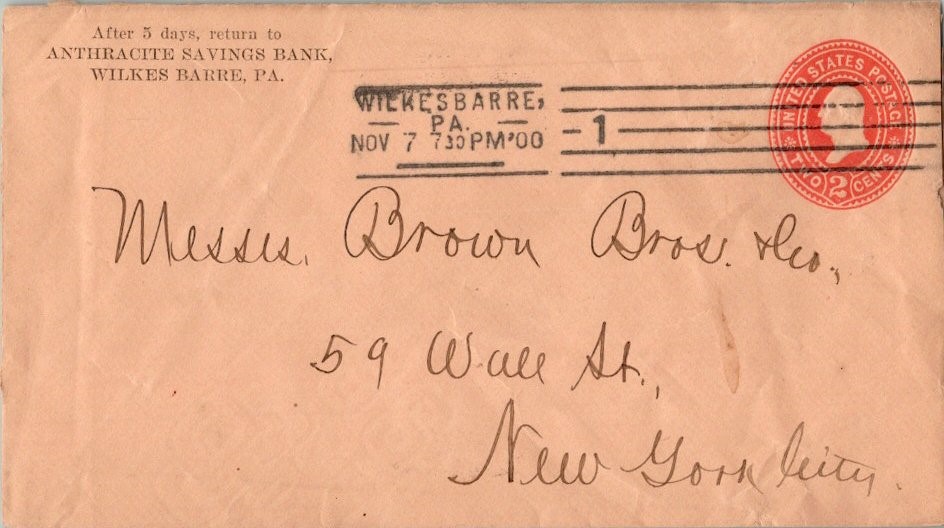 After 5 days, return to
ANTHRACITE SAVINGS BANK,
WILKES BARRE, PA.
WILKESBARRE,
PA.
NOV 7 730PM'00
1
UNITED STATES POSTAGE
TWO 2 CENTS
Messrs. Brown Bros. & Co.,
59 Wall St.,
New York City.